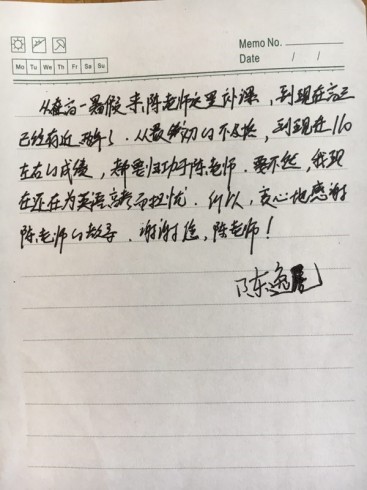 Memo No.
Mo Tu We Th Fr Sa Su
Date / /
从高一暑假来陈老师这里补课，到现在高三
已经有近两年了．从最初的不及格，到现在110
左右的成绩，都要归功于陈老师．要不然，我现
在还在为英语高考而担忧．所以，衷心地感谢
陈老师的教导．谢谢您，陈老师！
陈逸